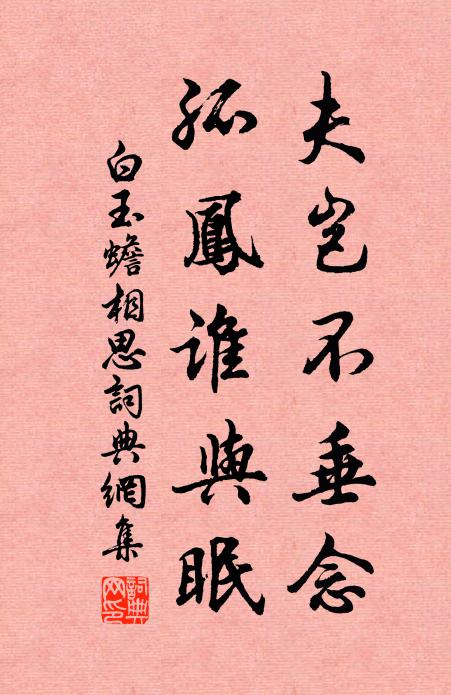 夫豈不垂念
孤鳳誰與眠
白玉蟾相思詞典網集
詞典網印